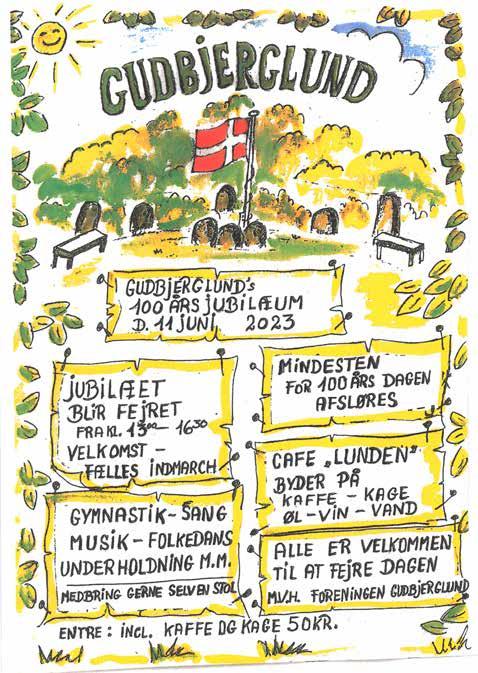 GUDBJERGLUND
GUDBJERGLUND's
100 ÅRS JUBILÆUM
D. 11 JUNI 2023
JUBILÆET
BLIR FEJRET
FRA KL. 13⁰⁰ - 16³⁰
VELKOMST -
FÆLLES INDMARCH
GYMNASTIK - SANG
MUSIK - FOLKEDANS
UNDERHOLDNING M.M.
MEDBRING GERNE SELV EN STOL
MINDESTEN
FOR 100 ÅRS DAGEN
AFSLØRES
CAFE „LUNDEN"
BYDER PÅ
KAFFE - KAGE
ØL - VIN - VAND
ALLE ER VELKOMMEN
TIL AT FEJRE DAGEN
M.V.H. FORENINGEN GUDBJERGLUND
ENTRE : INCL. KAFFE OG KAGE 50 KR.